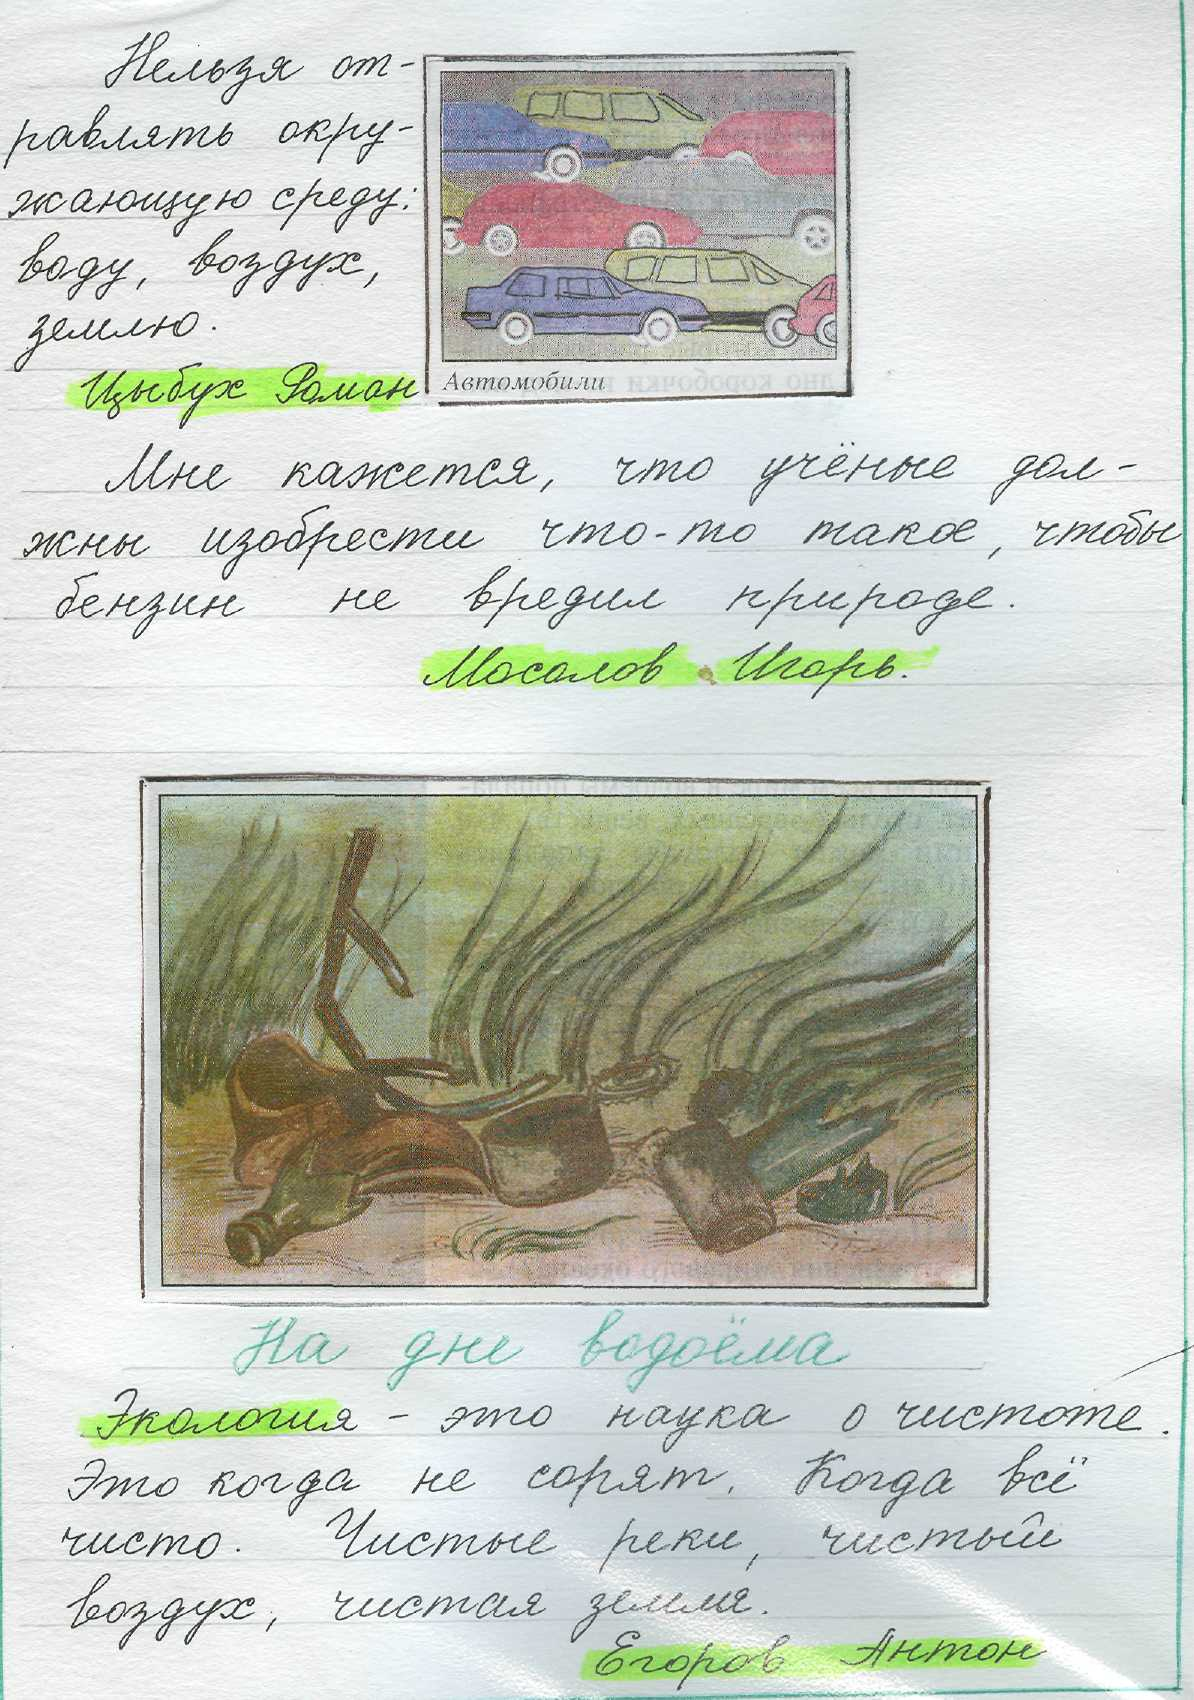 Нельзя от-
равлять окру-
жающую среду:
воду, воздух,
землю.
Цыбух Роман
Автомобили
Мне кажется, что учёные дол-
жны изобрести что-то такое, чтобы
бензин не вредил природе.
Мосолов Игорь.
На дне водоёма
Экология - это наука о чистоте.
Это когда не сорят. Когда всё
чисто. Чистые реки, чистый
воздух, чистая земля.
Егоров Антон